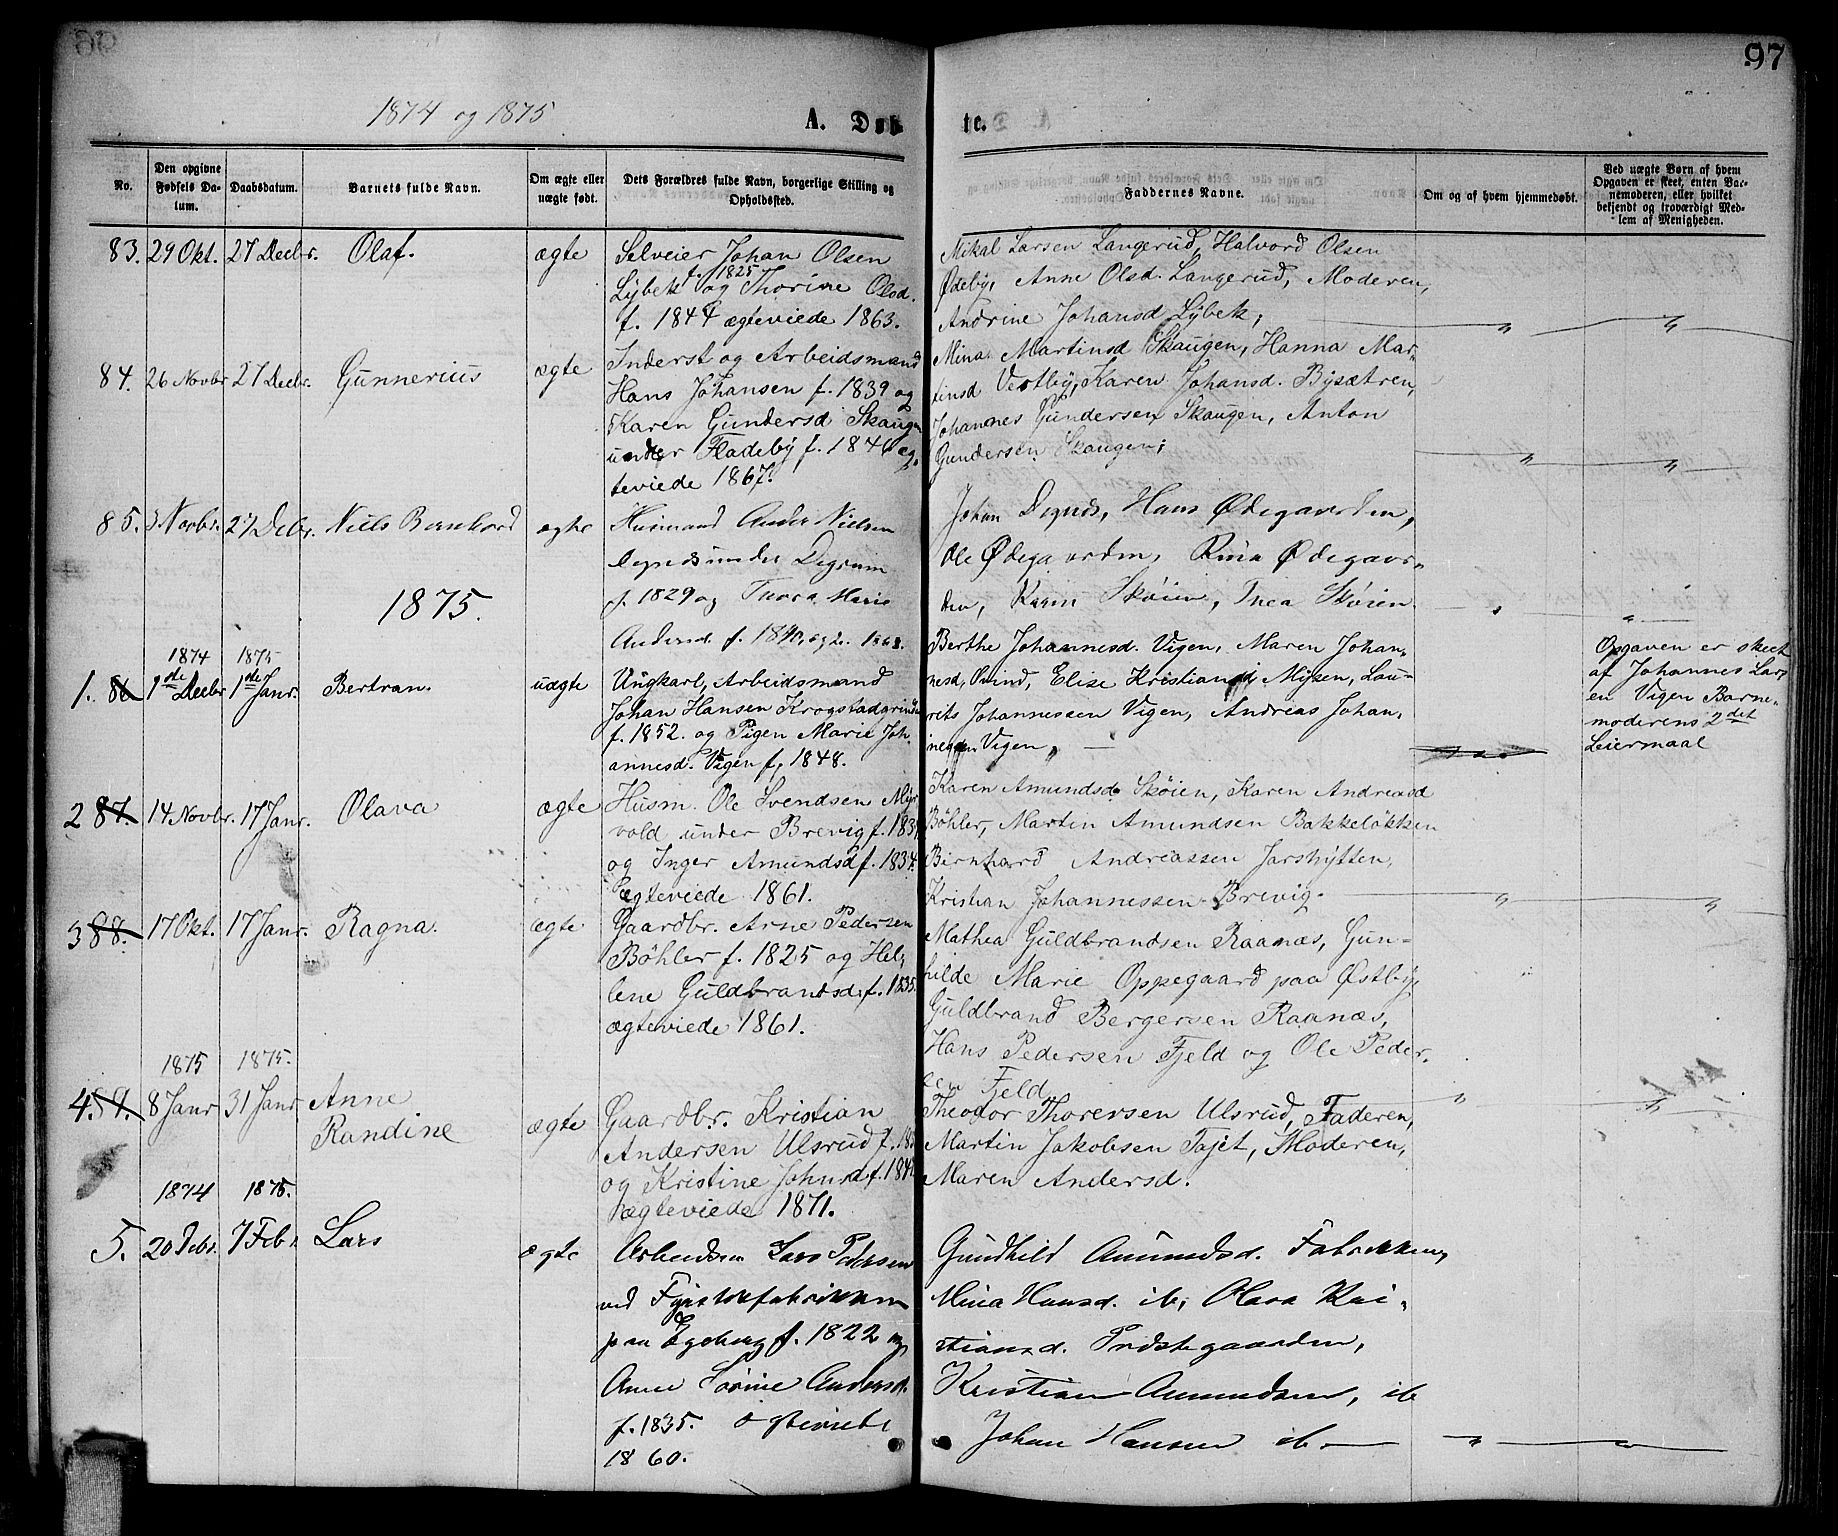 97
1874 og 1875
A. Døb te.
No.
Den opgivne Fødsels Datum.
Daabsdatum.
Barnets fulde Navn.
Om ægte eller uægte født.
Dets Forældres fulde Navn, borgerlige Stilling og Opholdssted.
Faddernes Navne.
Om og af hvem hjemmedøbt.
Ved uægte Børn af hvem Opgaven er skeet, enten Barnemoderen, eller hvilket bekjendt og troværdigt Medlem af Menigheden.
83. 29 Okt. 27 Decbr. Olaf. ægte
Selveier Johan Olsen
f. 1825
Lybek og Thorine Olsd.
f. 1844 ægteviede 1863.
Mikal Larsen Langerud, Halvord Olsen
Ødeby, Anne Olsd. Langerud, Moderen,
Andrine Johansd Lybek;
84. 26 Novbr 27 Decbr. Gunnerius ægte
Inderst og Arbeidsmand
Hans Johansen f. 1839 og
Karen Gundersd Skaugen
under Fladeby f. 1846 æg-
teviede 1867.
Mina Martinsd Skaugen, Hanna Mar-
tinsd Vestby, Karen Johansd. Bysætren,
Johannes Gundersen Skaugen, Anton
Gundersen Skaugen;
85. 3 Novbr. 27 Decbr. Niels Bernhard ægte
Husmand Anders Nielsen
Degnes under Degrum
f. 1829 og Thora Marie
Andersd. f. 1840,
Johan Degnes, Hans Ødegaarden,
Ole Ødegaarden, Rina Ødegaar-
den, Karen Skøien, Thea Skøien.
1875.
1874 1875
1. 86 1ste Decbr 1ste Janr. Bertran. uægte
Ungkarl, Arbeidsmand
Johan Hansen Krogstadgrinden
f. 1852. og Pigen Marie Joh-
annesd. Vigen f. 1848.
Berthe Johannesd. Vigen, Maren Johan-
nesd, Ovind, Elise Kristiansd Mysen, Lau-
rits Johannessen Vigen, Andreas Johan-
nessen Vigen,
Opgaven er skeet
af Johannes Lars
en Vigen Barne-
moderens 2det
Leiermaal
2 87. 14 Novbr. 17 Janr. Olava ægte
Husm. Ole Svendsen Myr
vold under Brevig f. 183
og Inger Amundsd f. 1834.
ægteviede 1861.
Karen Amundsd. Skøien, Karen Andreasd
Bøhler, Martin Amundsen Bakkeløkken
Birnhard Andreassen Jarshytten,
Kristian Johannessen Brevig.
3 88. 17 Okt. 17 Janr. Ragna. ægte
Gaardbr. Arne Pedersen
Bøhler f. 1825 og Hel-
lene Guldbrandsd. f. 1835.
ægteviede 1861.
Mathea Guldbrandsen Raanæs, Gun-
hilde Marie Oppegaard paa Østby,
Guldbrand Bergersen Raanæs,
Hans Pedersen Fjeld og Ole Peder-
sen Fjeld
1875 1875.
4. 89. 8 Janr 31 Janr Anne
Randine ægte
Gaardbr. Kristian
Andersen Ulsrud f. 18
og Kristine Johnsd f. 184
ægteviede 1871.
Theodor Thorersen Ulsrud, Faderen,
Martin Jakobsen Tajet, Moderen,
Maren Andersd.
1874 1875.
5. 20 Debr. 7 Febr. Lars ægte
Arbeidsm Lars Pedersen
ved Fyrstikfabrikken
paa Egeberg f. 1822 og
Anne Sørine Andersd.
f. 1835. ægteviede
1860.
Gundhild Amundsd. Fabrikken,
Mina Hansd. ib, Olava Kri-
stiansd. Prestegaarden,
Kristian Amundsen, ib
Johan Hansen ib